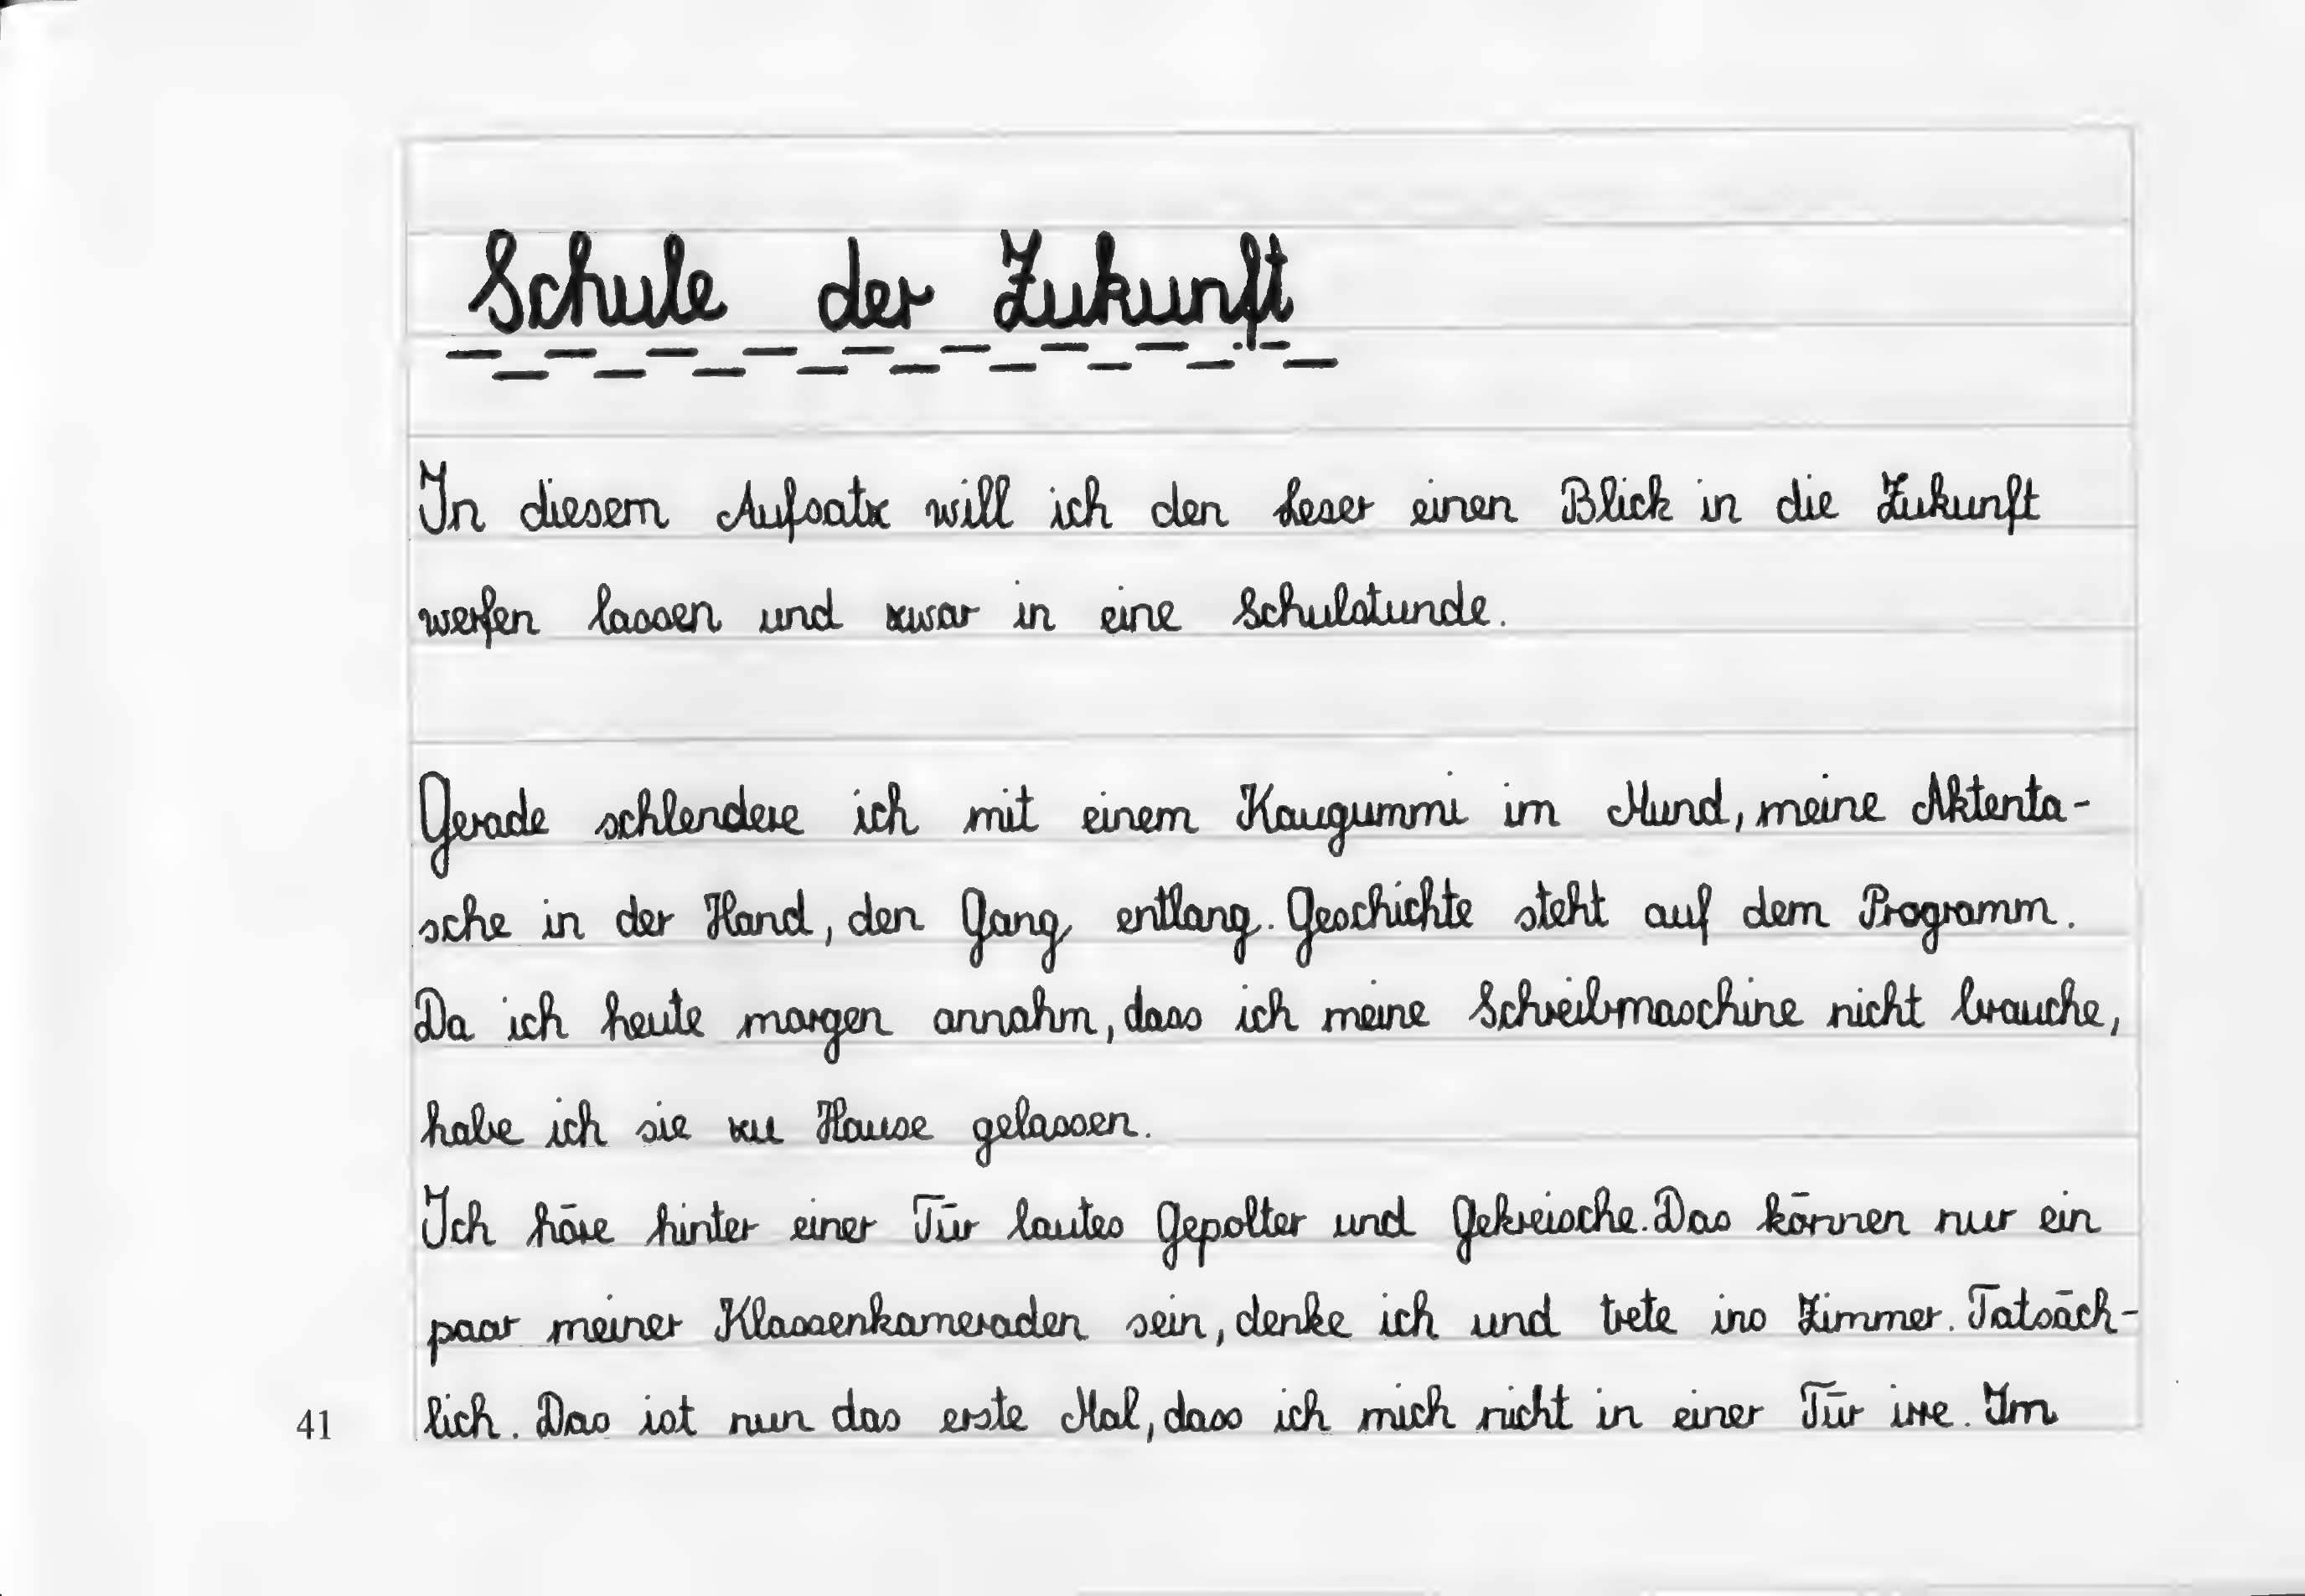 Schule der Zukunft
In diesem Aufsatz will ich den Leser einen Blick in die Zukunft
werfen lassen und zwar in eine Schulstunde.
Gerade schlendere ich mit einem Kaugummi im Mund, meine Aktenta-
sche in der Hand, den Gang entlang. Geschichte steht auf dem Programm.
Da ich heute morgen annahm, dass ich meine Schreibmaschine nicht brauche,
habe ich sie zu Hause gelassen.
Ich höre hinter einer Tür lautes Gepolter und Gekreische. Das können nur ein
paar meiner Klassenkameraden sein, denke ich und trete ins Zimmer. Tatsäch-
lich. Das ist nun das erste Mal, dass ich mich nicht in einer Tür irre. Im
41